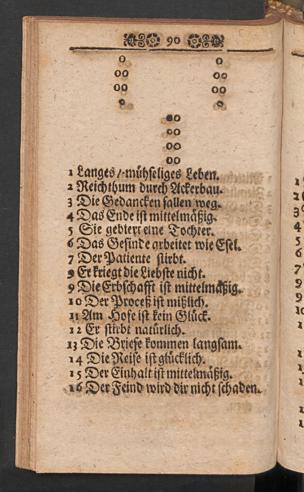 90
1 Langes/ mühseliges Leben.
2 Reichthum durch Ackerbau.
3 Die Gedancken fallen weg.
4 Das Ende ist mittelmäßig.
5 Sie gebiert eine Tochter.
6 Das Gesinde arbeitet wie Esel.
7 Der Patiente stirbt.
9 Er kriegt die Liebste nicht.
9 Die Erbschafft ist mittelmäßig.
10 Der Proceß ist mißlich.
11 Am Hofe ist kein Glück.
12 Er stirbt natürlich.
13 Die Briefe kommen langsam.
14 Die Reise ist glücklich.
15 Der Einhalt ist mittelmäßig.
16 Der Feind wird dir nicht schaden.